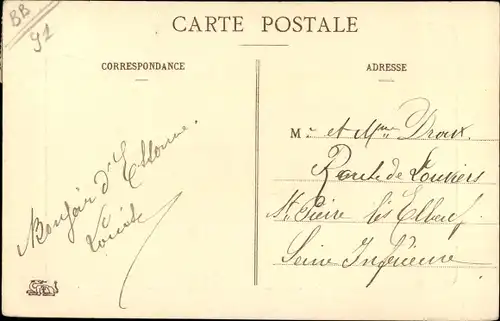 BB
91
CARTE POSTALE
CORRESPONDANCE
ADRESSE
Bonjour d'Essonne.
M. et Mme Droux
Route de Louviers
St Pierre lès Elbeuf
Seine Inférieure